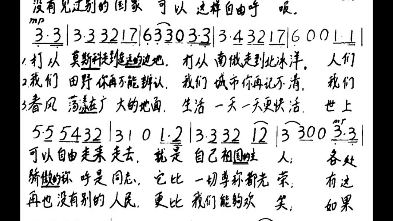 没有见过别的国家 可以 这样自由呼 吸。
mp
3·3 | 3·3 3 3 2 1 7 | 6 3 3 0 3·3 | 3·4 3 2 1 7 | 6 0 0 1·1 |
1.打从 莫斯科走到遥远的边地, 打从 南俄走到北冰洋。 人们
2.我们 田野你再不能辨认, 我们 城市你再记不清, 我们
3.春风 荡漾在广大的地面, 生活 一天一天更快活, 世上
mf
5·5 5 4 3 2 | 3 1 0 1·2 | 3·3 3 2 1 2 | 3 3 0 0 3·3 |
可以自由走来走去, 就是 自己祖国的主 人; 各处
骄傲的称 呼是同志, 它比 一切尊称都光 荣, 有这
再也没有别的人民, 更比 我们能够欢 笑, 如果